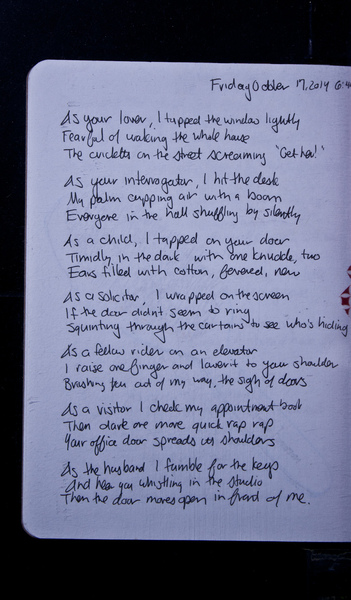 Friday October 17, 2014 6:4
As your lover, I tapped the window lightly
Fearful of waking the whole house
The crickets on the street screaming "Get her!"
As your interrogator, I hit the desk
My palm cupping air with a boom
Everyone in the hall shuffling by silently
As a child, I tapped on your door
Timidly in the dark with one knuckle, two
Ears filled with cotton, fevered, new
As a solicitor, I wrapped on the screen
If the door didn't seem to ring
Squinting through the curtains to see who's hiding
As a fellow rider on an elevator
I raise one finger and lower it to your shoulder
Brushing you out of my way, the sigh of doors
As a visitor I check my appointment book
Then dark one more quick rap rap
Your office door spreads its shoulders
As the husband I fumble for the keys
And hear you whistling in the studio
Then the door moves open in front of me.